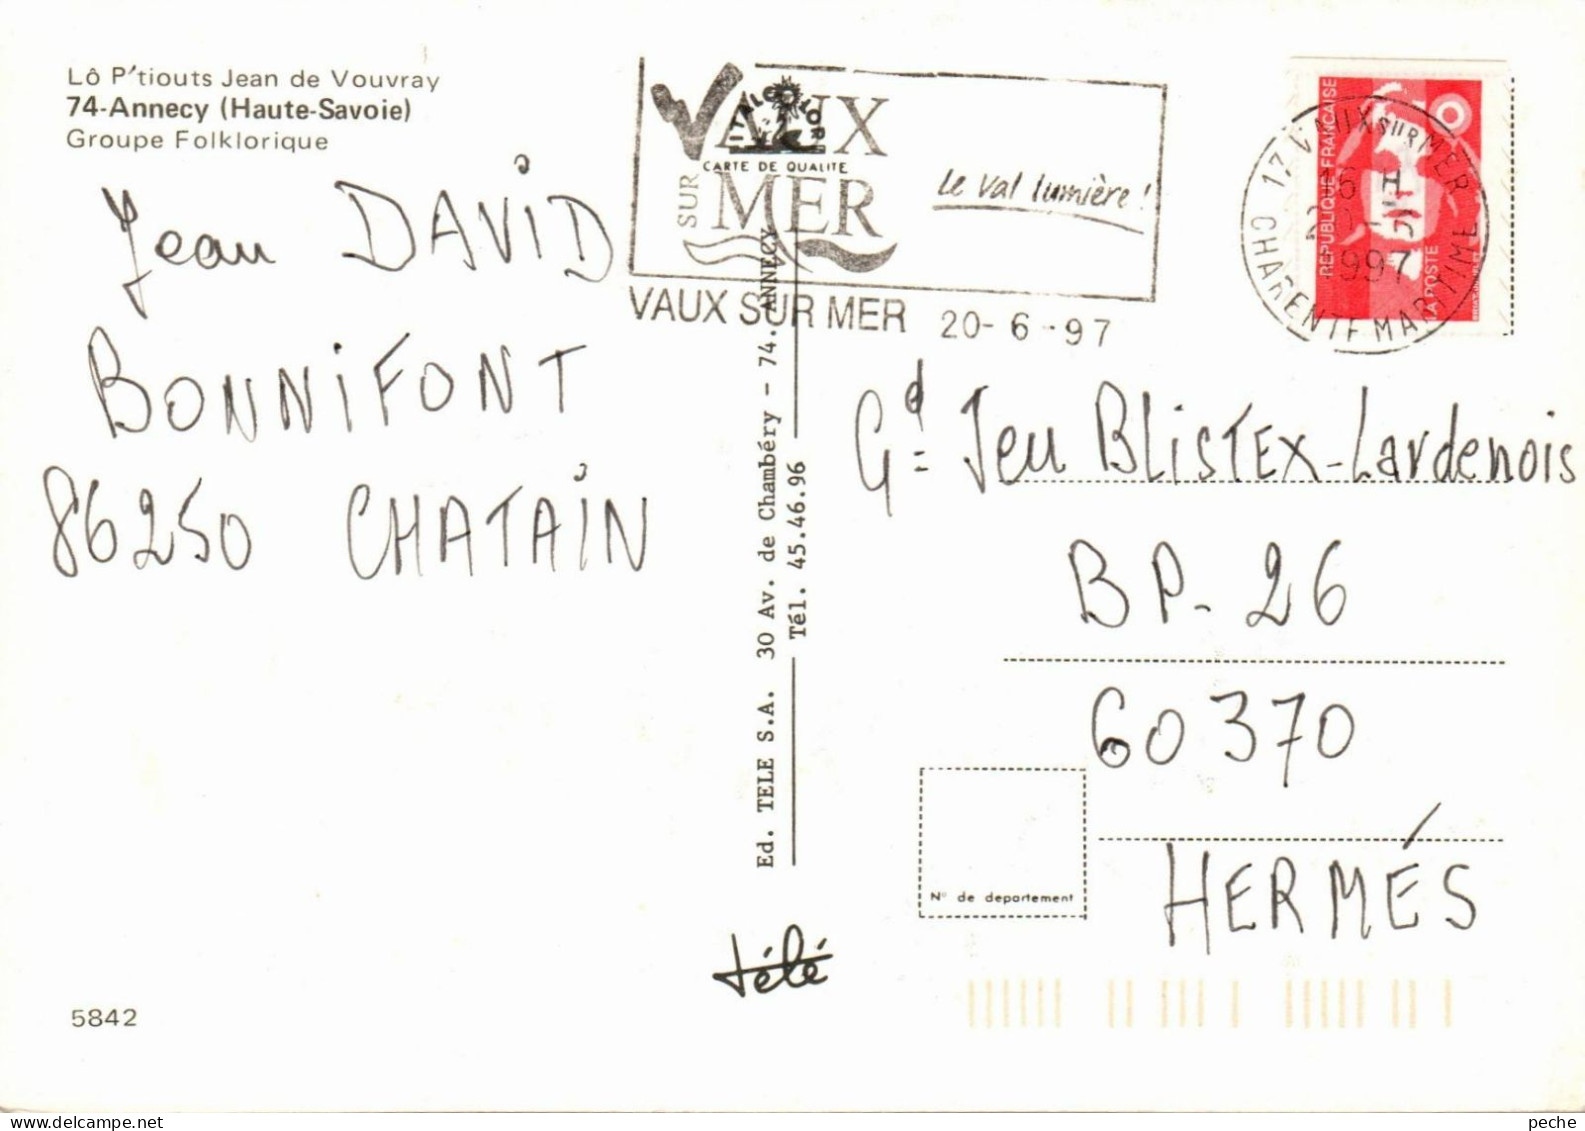 Lô P'tiouts Jean de Vouvray
74-Annecy (Haute-Savoie)
Groupe Folklorique
Jean DAVID
BONNIFONT
86250 CHATAIN
5842
Ed. TELE S.A. 30 Av. de Chambéry - 74. ANNECY
Tél. 45.46.96
télé
VAUX
SUR
MER
ITALCOLOR
CARTE DE QUALITE
Le val lumière !
VAUX SUR MER 20-6-97
REPUBLIQUE FRANÇAISE
LA POSTE
17 VAUX SUR MER
16 H
1997
CHARENTE MARITIME
Gd Jeu BLISTEX-Lardenois
BP-26
60370
HERMÉS
N° de departement
peche